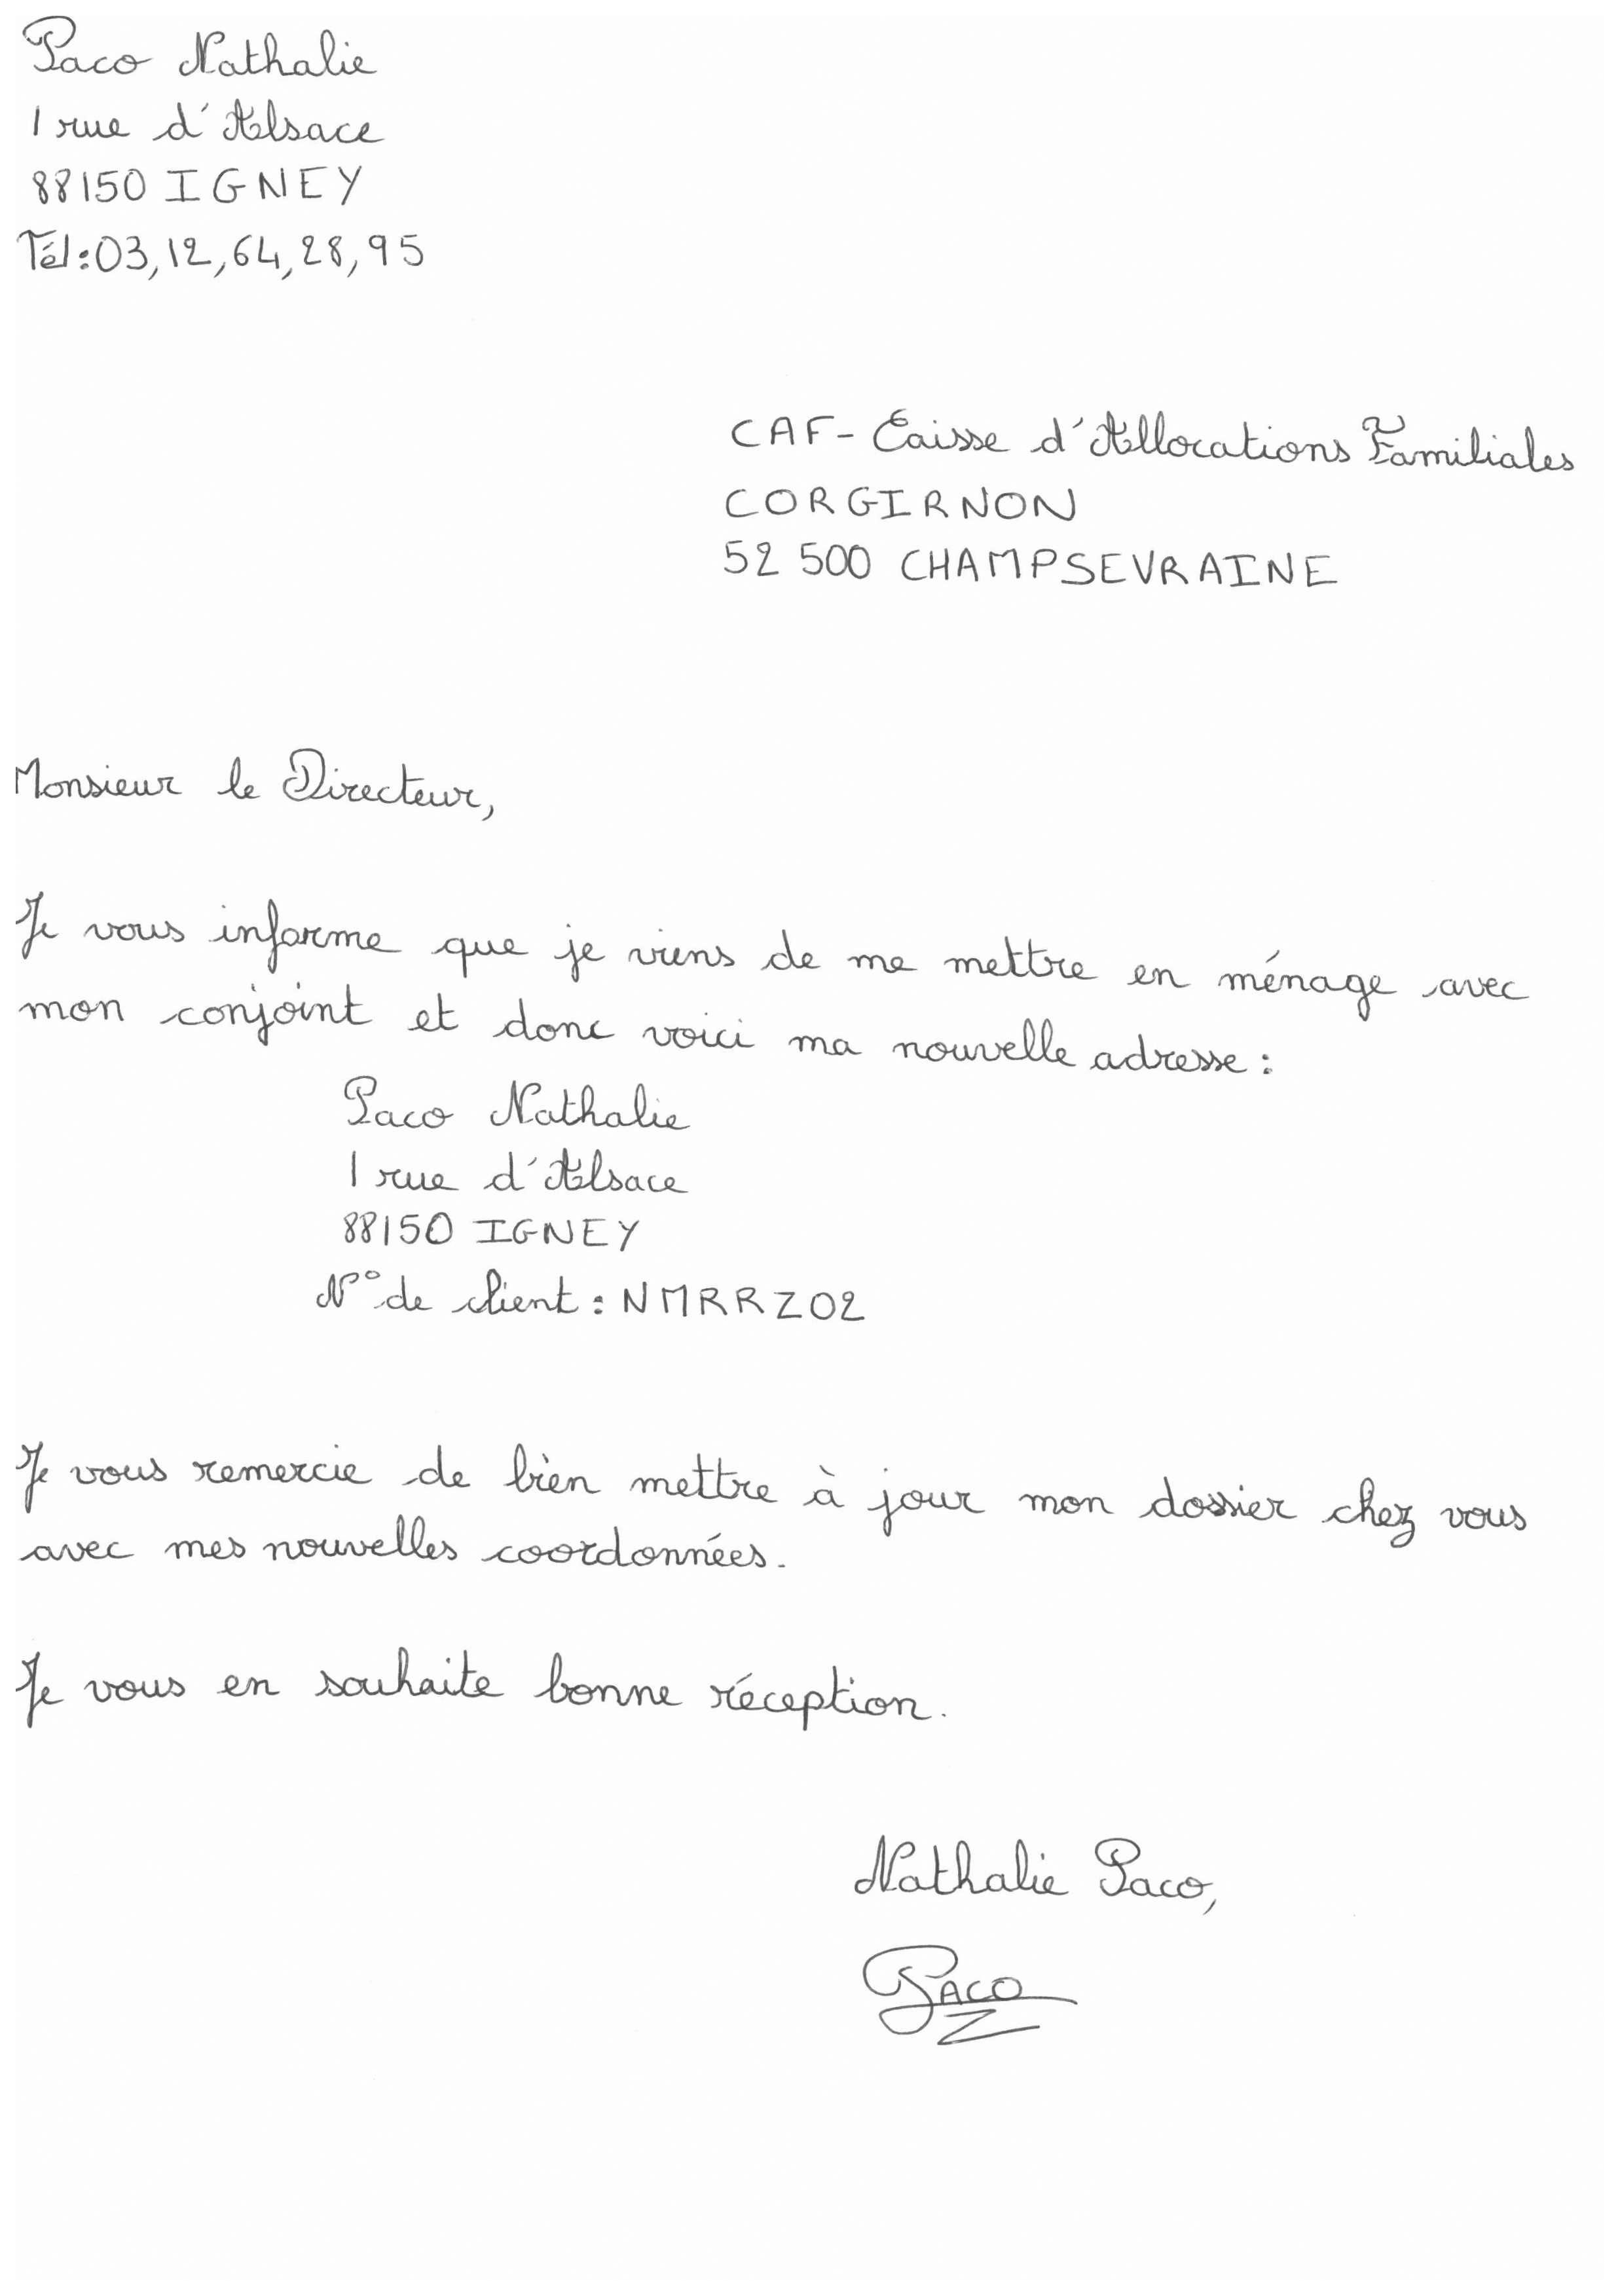 Paco Nathalie
1 rue d'Alsace
88150 IGNEY
Tél:03,12,64,28,95
CAF- Caisse d'Allocations Familiales
CORGIRNON
52 500 CHAMPSEVRAINE
Monsieur le Directeur,
Je vous informe que je viens de me mettre en ménage avec
mon conjoint et donc voici ma nouvelle adresse :
Paco Nathalie
1 rue d'Alsace
88150 IGNEY
N° de client : NMRRZ02
Je vous remercie de bien mettre à jour mon dossier chez vous
avec mes nouvelles coordonnées.
Je vous en souhaite bonne réception.
Nathalie Paco,
PACO